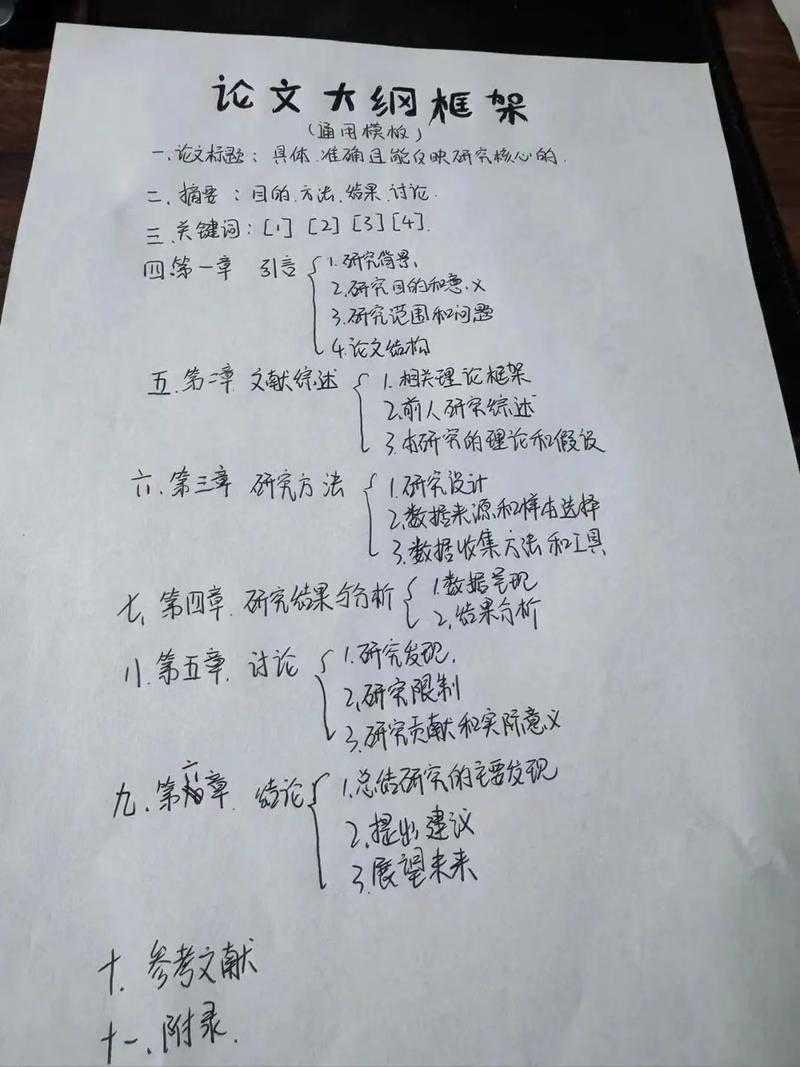 论文大纲框架
(通用模板)
一、论文标题：具体、准确且能反映研究核心的.
二、摘要：目的、方法、结果、讨论.
三、关键词：[1] [2] [3] [4].
四、第一章 引言 1.研究背景、
2.研究目的和意义
3.研究范围和问题
4.论文结构
五.第二章 文献综述 1.相关理论框架
2.前人研究综述
3.本研究的理论和假设
六.第三章 研究方法 1.研究设计
2.数据来源和样本选择
3.数据收集方法和工具
七、第四章.研究结果与分析 1.数据呈现
2.结果分析
八.第五章.讨论 1.研究发现.
2.研究限制
3.研究贡献和实际意义
九、第六章.结论 1.总结研究的主要发现
2.提出建议
3.展望未来
十.参考文献
十一、附录.